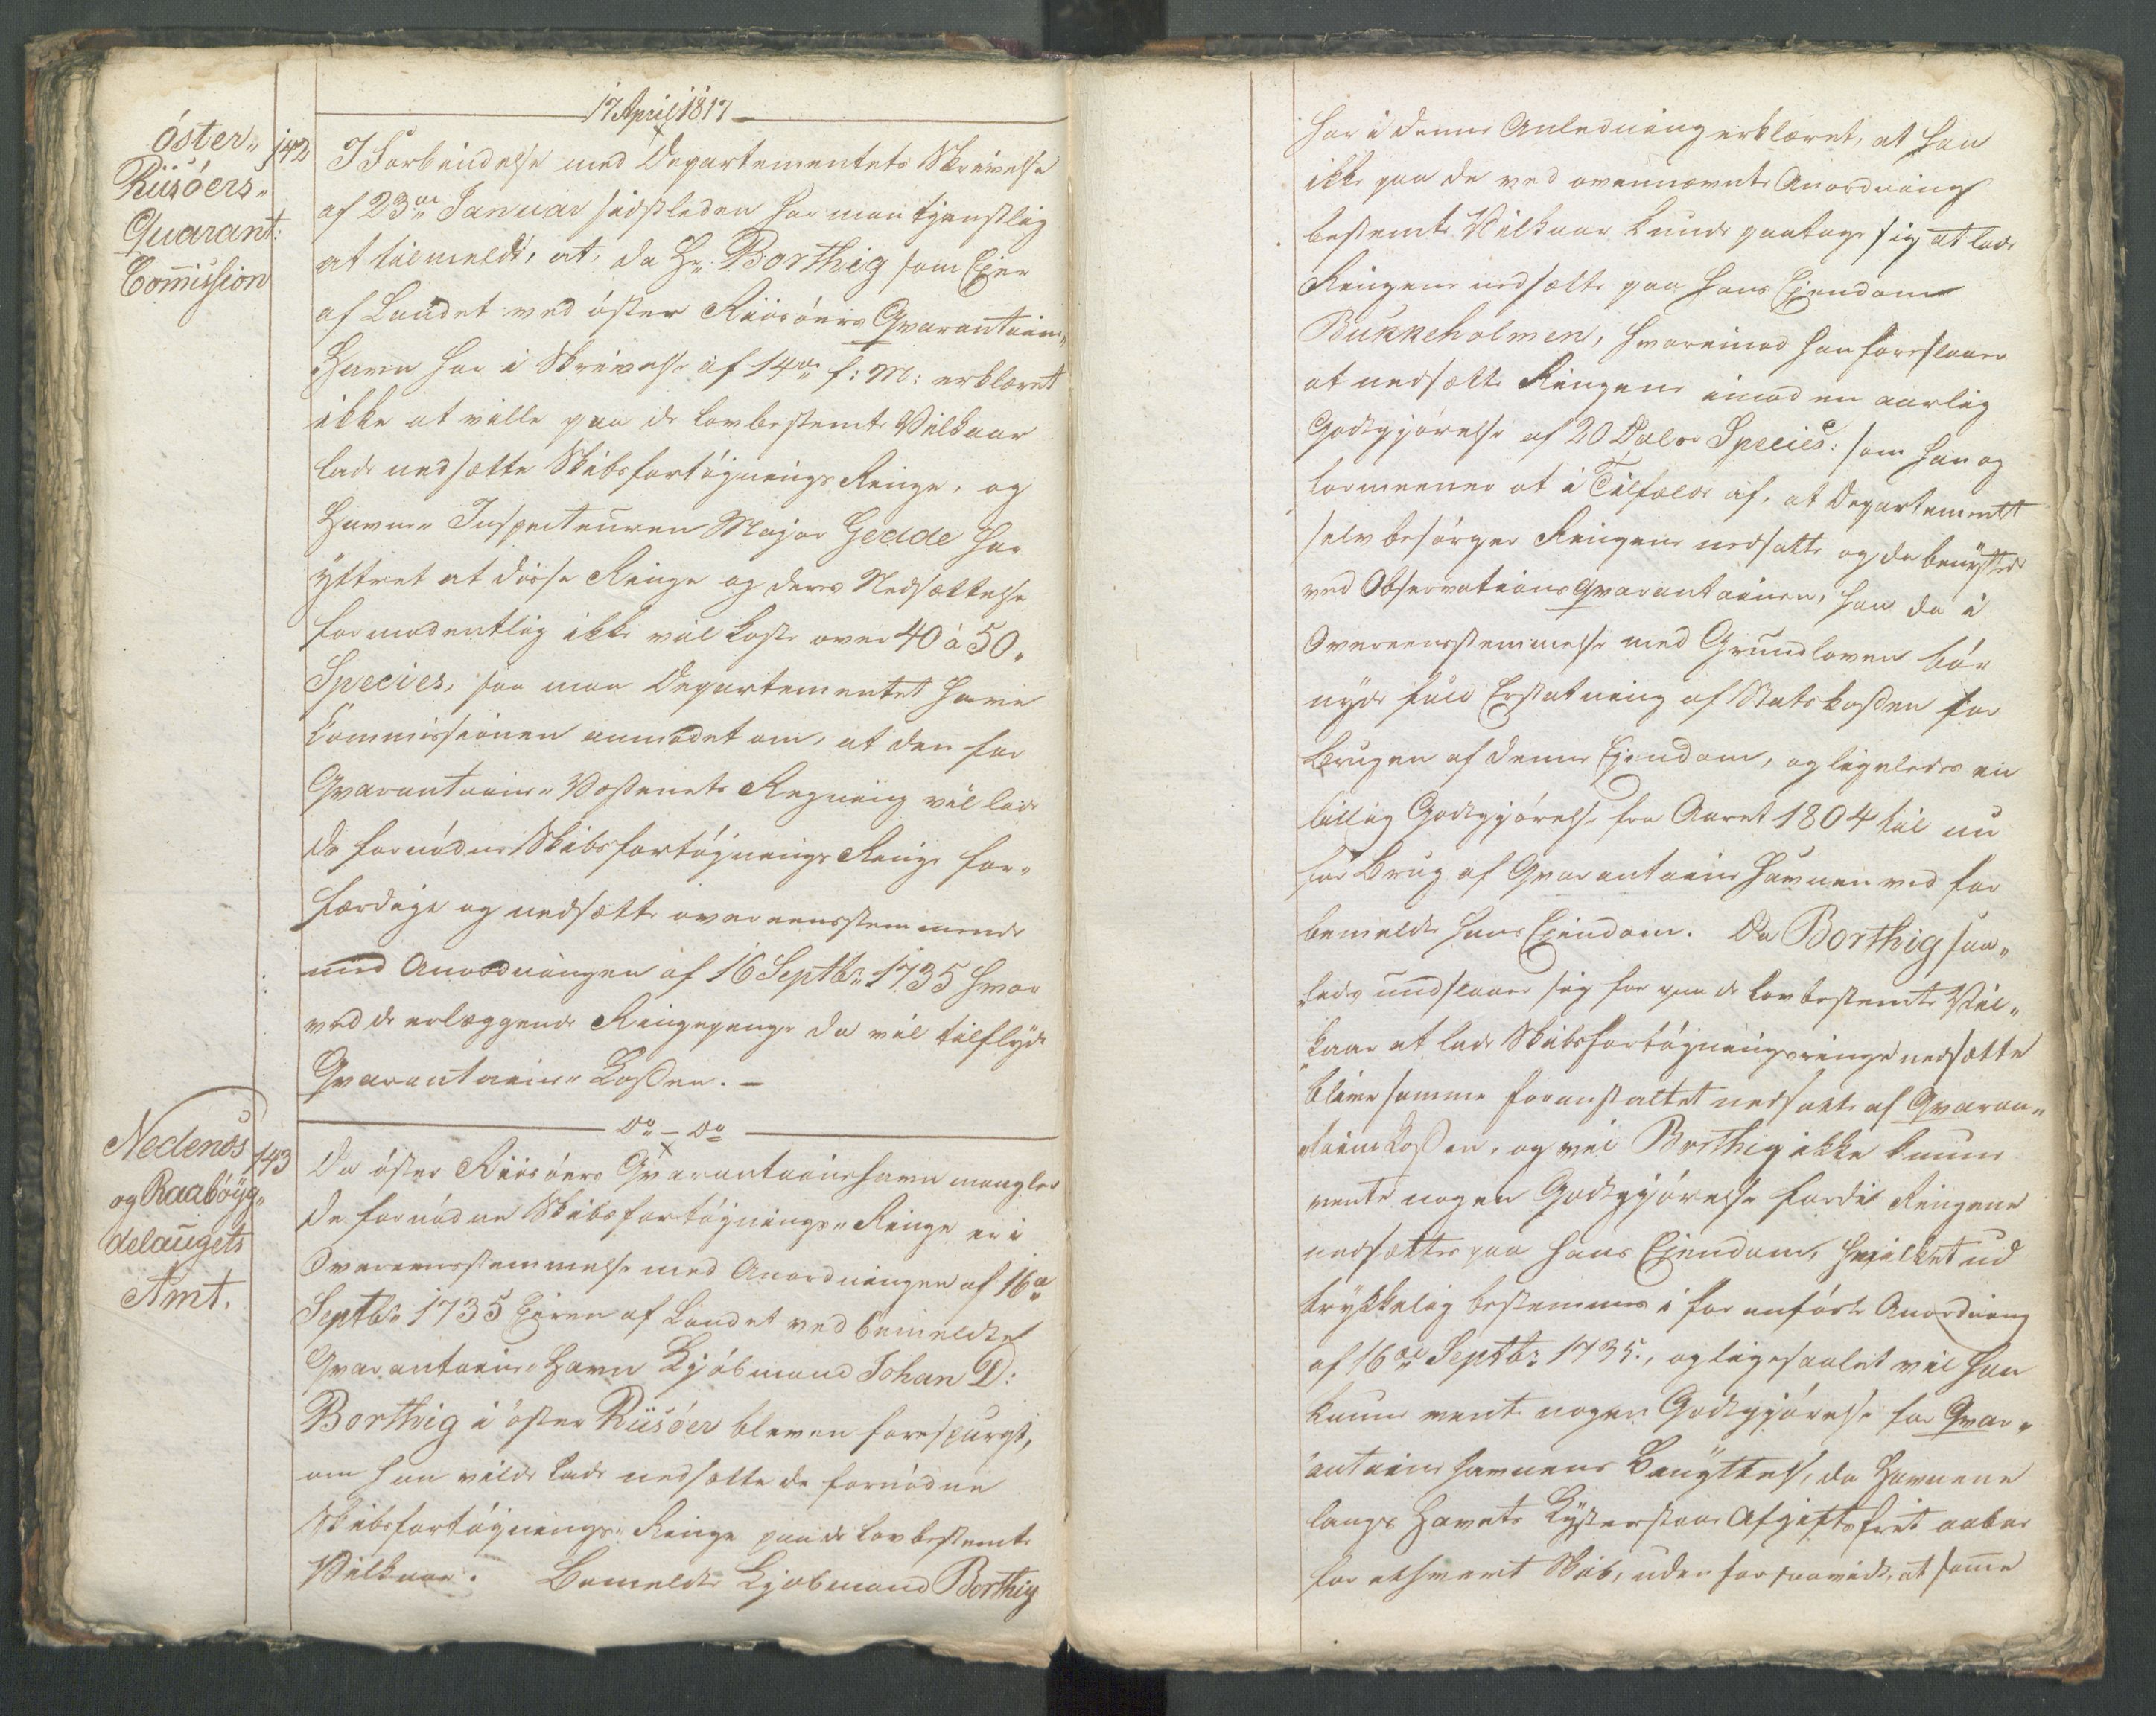 17 April 1817
öster„
Riisöers„
Qvarant:
Com̄ission
142
I Forbindelse med Departementets Skrivelse
af 23de Januar sidstleden har man tjenstlig
at tilmelde, at, da Hr. Borthig som Eier
af Landet ved öster Riisöers Qvarantaine„
Havn har i Skrivelse af 14de f: M: erklæret
ikke at ville paa de lovbestemte Vilkaar
lade nedsætte Skibsfortöynings Ringe, og
Havne„ Inspecteuren Major Gedde har
yttret at disse Ringe og deres Nedsættelse
formodentlig ikke vil koste over 40 à 50„
Species, saa maa Departementet have
Commissionen anmodet om, at den for
Qvarantaine„ Væsenets Regning vil lade
de fornödne Skibsfortöynings Ringe for„
færdige og nedsætte overeensstemmende
med Anordningen af 16 Septbr. 1735 hvor
ved de erlæggende Ringepenge da vil tilflyde
Qvarantaine„ Kassen. —
Do — Do
Nedenæs
og Raabøyg„
delaugets
Amt.
143
Da öster Riisöers Qvarantainehavn mangler
de fornödne Skibsfortöynings„ Ringe er i
Overeensstemmelse med Anordningen af 16de
Septbr. 1735 Eieren af Landet ved bemeldte
Qvarantaine„ Havn Kjöbmand Johan D:
Borthig i öster Riisöer bleven forespurgt,
om han vilde lade nedsætte de fornödne
Skibsfortöynings„ Ringe paa de lovbestemte
Vilkaar. Bemeldte Kjöbmand Borthig
har i denne Anledning erklæret, at han
ikke paa de ved ovennævnte Anordning
bestemte Vilkaar kunde paatage sig at lade
Ringene nedsætte paa hans Ejendom
Bukkeholmen, hvorimod han foreslaaer
at nedsætte Ringene imod en aarlig
Godtgjörelse af 20 Daler Species: som han og
formeener at i Tilfælde af, at Departementet
selv besörger Ringene nedsatte og de benyttede
ved Observations Qvarantainen, han da i
Overeensstemmelse med Grundloven bör
nyde fuld Erstatning af Statskassen for
Brugen af denne Ejendom, og ligeledes en
billig Godtgjörelse fra Aaret 1804 til nu
for Brug af Qvarantaine Havnen ved for
bemeldte hans Ejendom. Da Borthig saa„
ledes undslaaer sig for paa de lovbestemte Vil„
kaar at lade Skibsfortöyningsringe nedsætte
blive samme foranstaltet nedsatte af Qvaran„
taine Kassen, og vil Borthig ikke kunne
vente nogen Godtgjörelse fordi Ringene
nedsættes paa hans Ejendom, hvilket ud
trykkelig bestemmes i for anförte Anordning
af 16de Septbr. 1735., og ligesaalidt vil han
kunne vente nogen Godtgjörelse for Qvar„
antaine havnens Benyttelse, da Havnene
langs Havets Kyster staae Afgiftsfrit aabne
for ethvert Skib, uden forsaavidt, at sam̄e